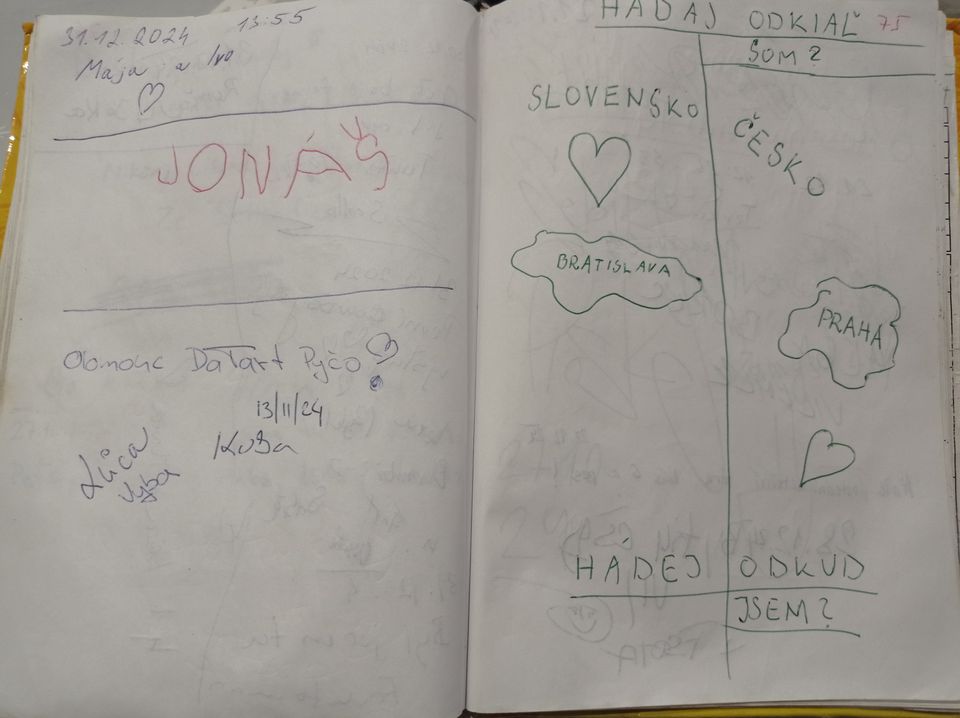 31.12.2024 13:55
Mája a Ivo
JONÁŠ
Olomouc Datart Pyčo
13/11/24
Kuba
Lůca
Vyba
HÁDAJ ODKIAĽ 75
SOM?
SLOVENSKO
ČESKO
BRATISLAVA
PRAHA
HÁDEJ ODKUD
JSEM?